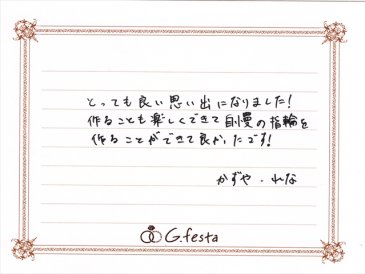 とっても良い思い出になりました!
作ることも楽しくできて自慢の指輪を
作ることができて良かったです!
かずや・れな
G.festa